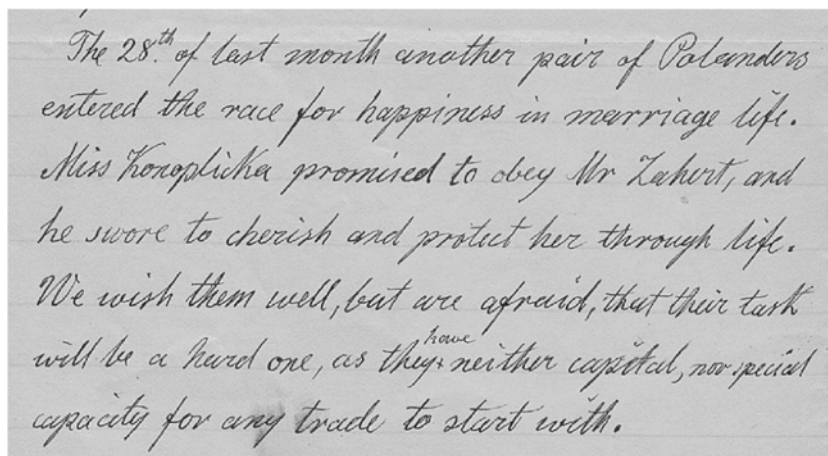 The 28.th of last month another pair of Polanders
entered the race for happiness in marriage life.
Miss Konoplicka promised to obey Mr Zahert, and
he swore to cherish and protect her through life.
We wish them well, but are afraid, that their task
will be a hard one, as they have neither capital, nor special
capacity for any trade to start with.